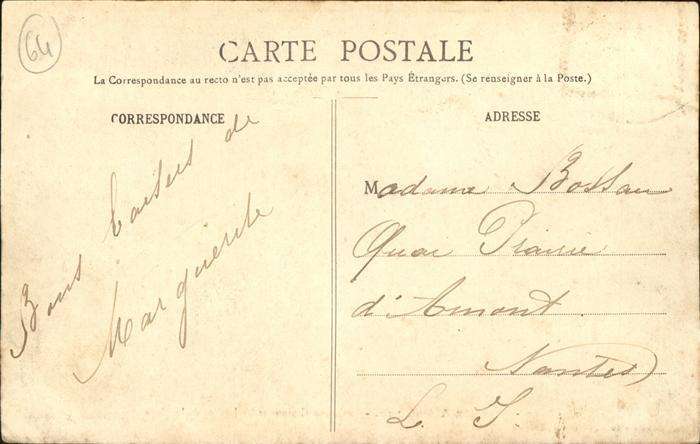 64
CARTE POSTALE
La Correspondance au recto n'est pas acceptée par tous les Pays Étrangers. (Se renseigner à la Poste.)
CORRESPONDANCE
Bons baisers de
Marguerite
ADRESSE
Madame Bossau
Quai Prairie
d'Amont
Nantes
L I